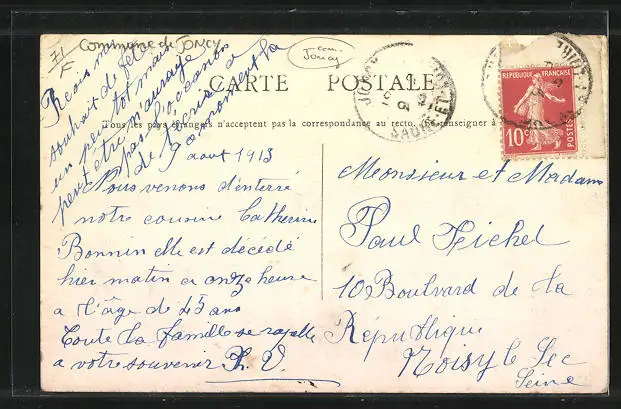 71
F
Commune de JONCY
com.
Joncy
CARTE POSTALE
Tous les pays étrangers n'acceptent pas la correspondance au recto. (Se renseigner à
RÉPUBLIQUE FRANÇAISE
10c
POSTES
souhait de fete
un peu tot mais
peut etre mauraije
pas l'occasion
de
9 aout 1913
Nous venons d'enterré
notre cousine Catherine
Bonnin elle est décédé
hier matin a onze heure
a l'âge de 45 ans
Toute la famille se rapelle
a votre souvenir
Monsieur et Madame
Paul Fichel
10 Boulvard de la
République
Noisy le Sec
Seine